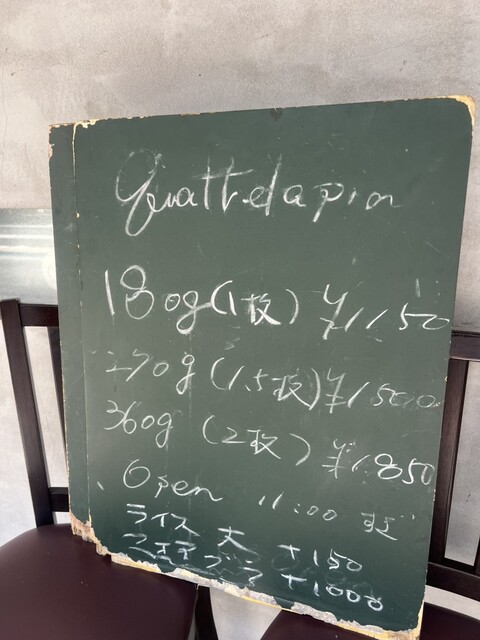 Quattr.lapin
180g(1枚) ¥1150
270g(1.5枚)¥1500
360g (2枚) ¥1850
Open 11:00
ライス 大 +150
+1000